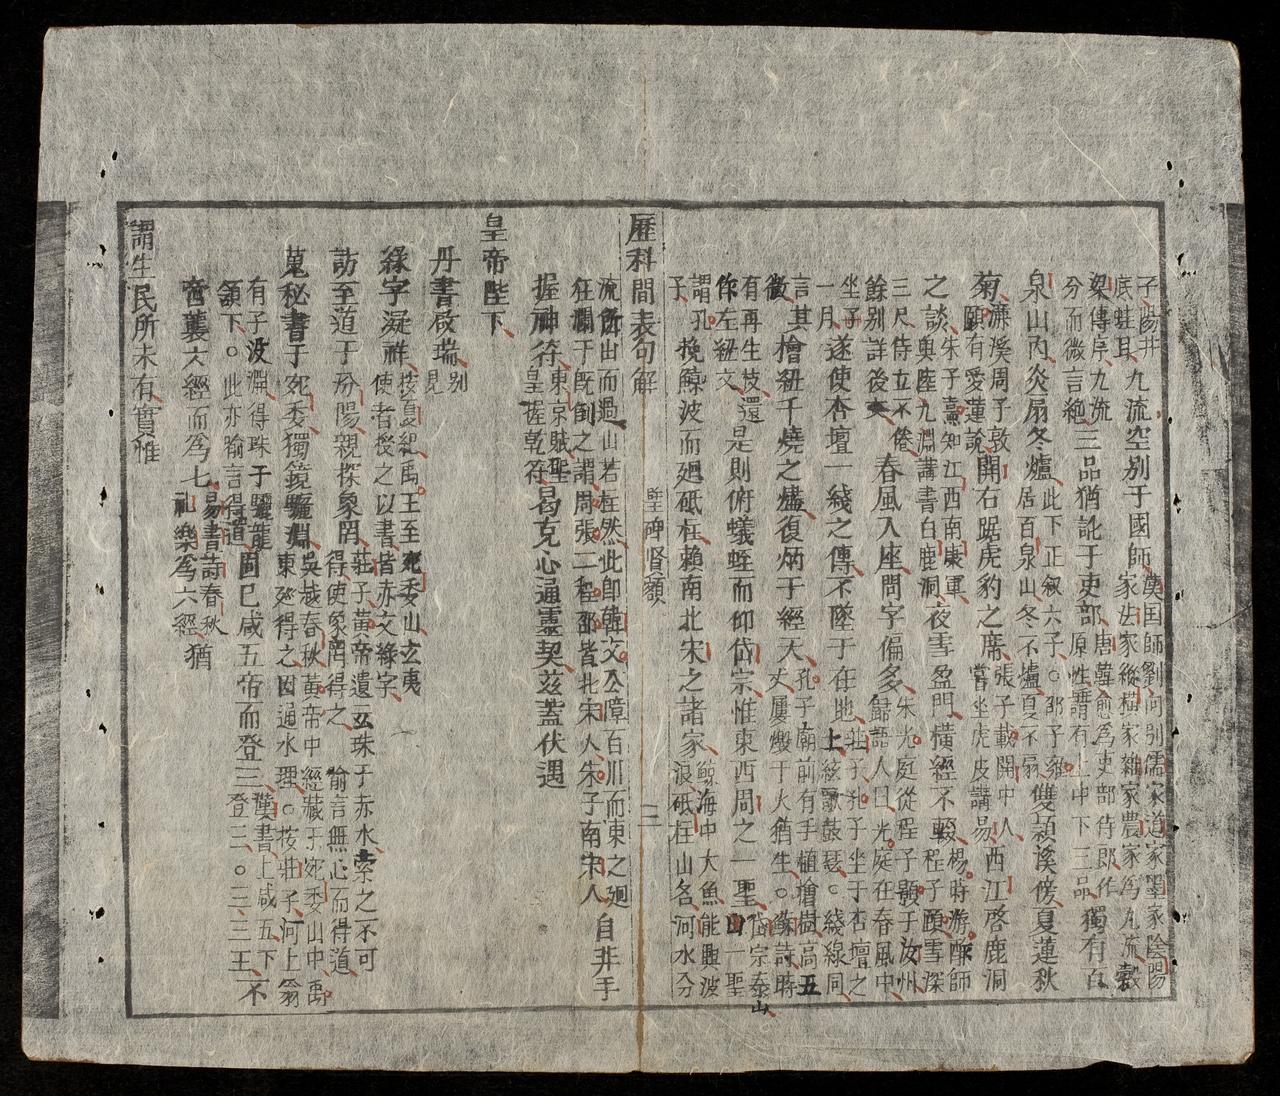 子陽井底蛙耳九流空別于國師漢国師劉向別儒家道家墨家陰陽家法家縱橫家雜家農家為九流穀
梁傳序九流分而微言絶三品猶訛于吏部唐韓愈為吏部侍郎作原性謂有上中下三品獨有百
泉山内炎扇冬爐此下正叙六子。邵子雍居百泉山冬不爐夏不扇雙穎溪傍夏蓮秋
菊濂溪周子敦頤有愛蓮說開右踞虎豹之席張子載開中人嘗坐虎皮講易西江啓鹿洞
之談朱子熹知江西南康軍與陸九淵講書白鹿洞夜雪盈門橫經不輟楊時游酢師程子頤雪深
三尺侍立不倦餘別詳後春風入座問字偏多朱光庭從程子顥于汝州歸語人曰光庭在春風中
坐了一月遂使杏壇一綫之傳不墜于在地莊子孔子坐于杏壇之上絃歌鼓瑟。綫線同
言其微檜紐千燒之燼復炳于經天孔子廟前有手植檜樹高五丈屢燬于火猶生。蘇詩時
有再生枝還作左紐文是則俯蟻蛭而仰岱宗惟東西周之一聖岱宗泰山一聖
謂孔子挽鯨波而廻砥柱頼南北宋之諸家鯨海中大魚能興波浪砥柱山名河水分
歷科間表句解 聖碑賢額 三
流所出而過山若柱然此即韓文公障百川而東之廻狂瀾于既倒之謂周張二程邵皆北宋人朱子南宋人自井乎
握神符東京賦聖皇握乾符曷克心通靈契茲蓋伏遇
皇帝陛下
丹書啟瑞別見
綠字凝祥按夏紀禹王至宛委山玄夷使者授之以書皆赤文綠字
訪至道于汾陽親探象罔莊子黃帝遺玄珠于赤水索之不可得使象罔得之喻言無心而得道
蒐秘書于宛委獨鏡驪淵吳越春秋黃帝中經藏于宛委山中禹東廵得之因通水理。按莊子河上翁
有子没淵得珠于驪龍頷下。此亦喻言得道固已咸五帝而登三漢書上咸五下登三。三三王不
啻蘘六經而為七易書詩春秋礼樂為六經猶
謂生民所未有實惟